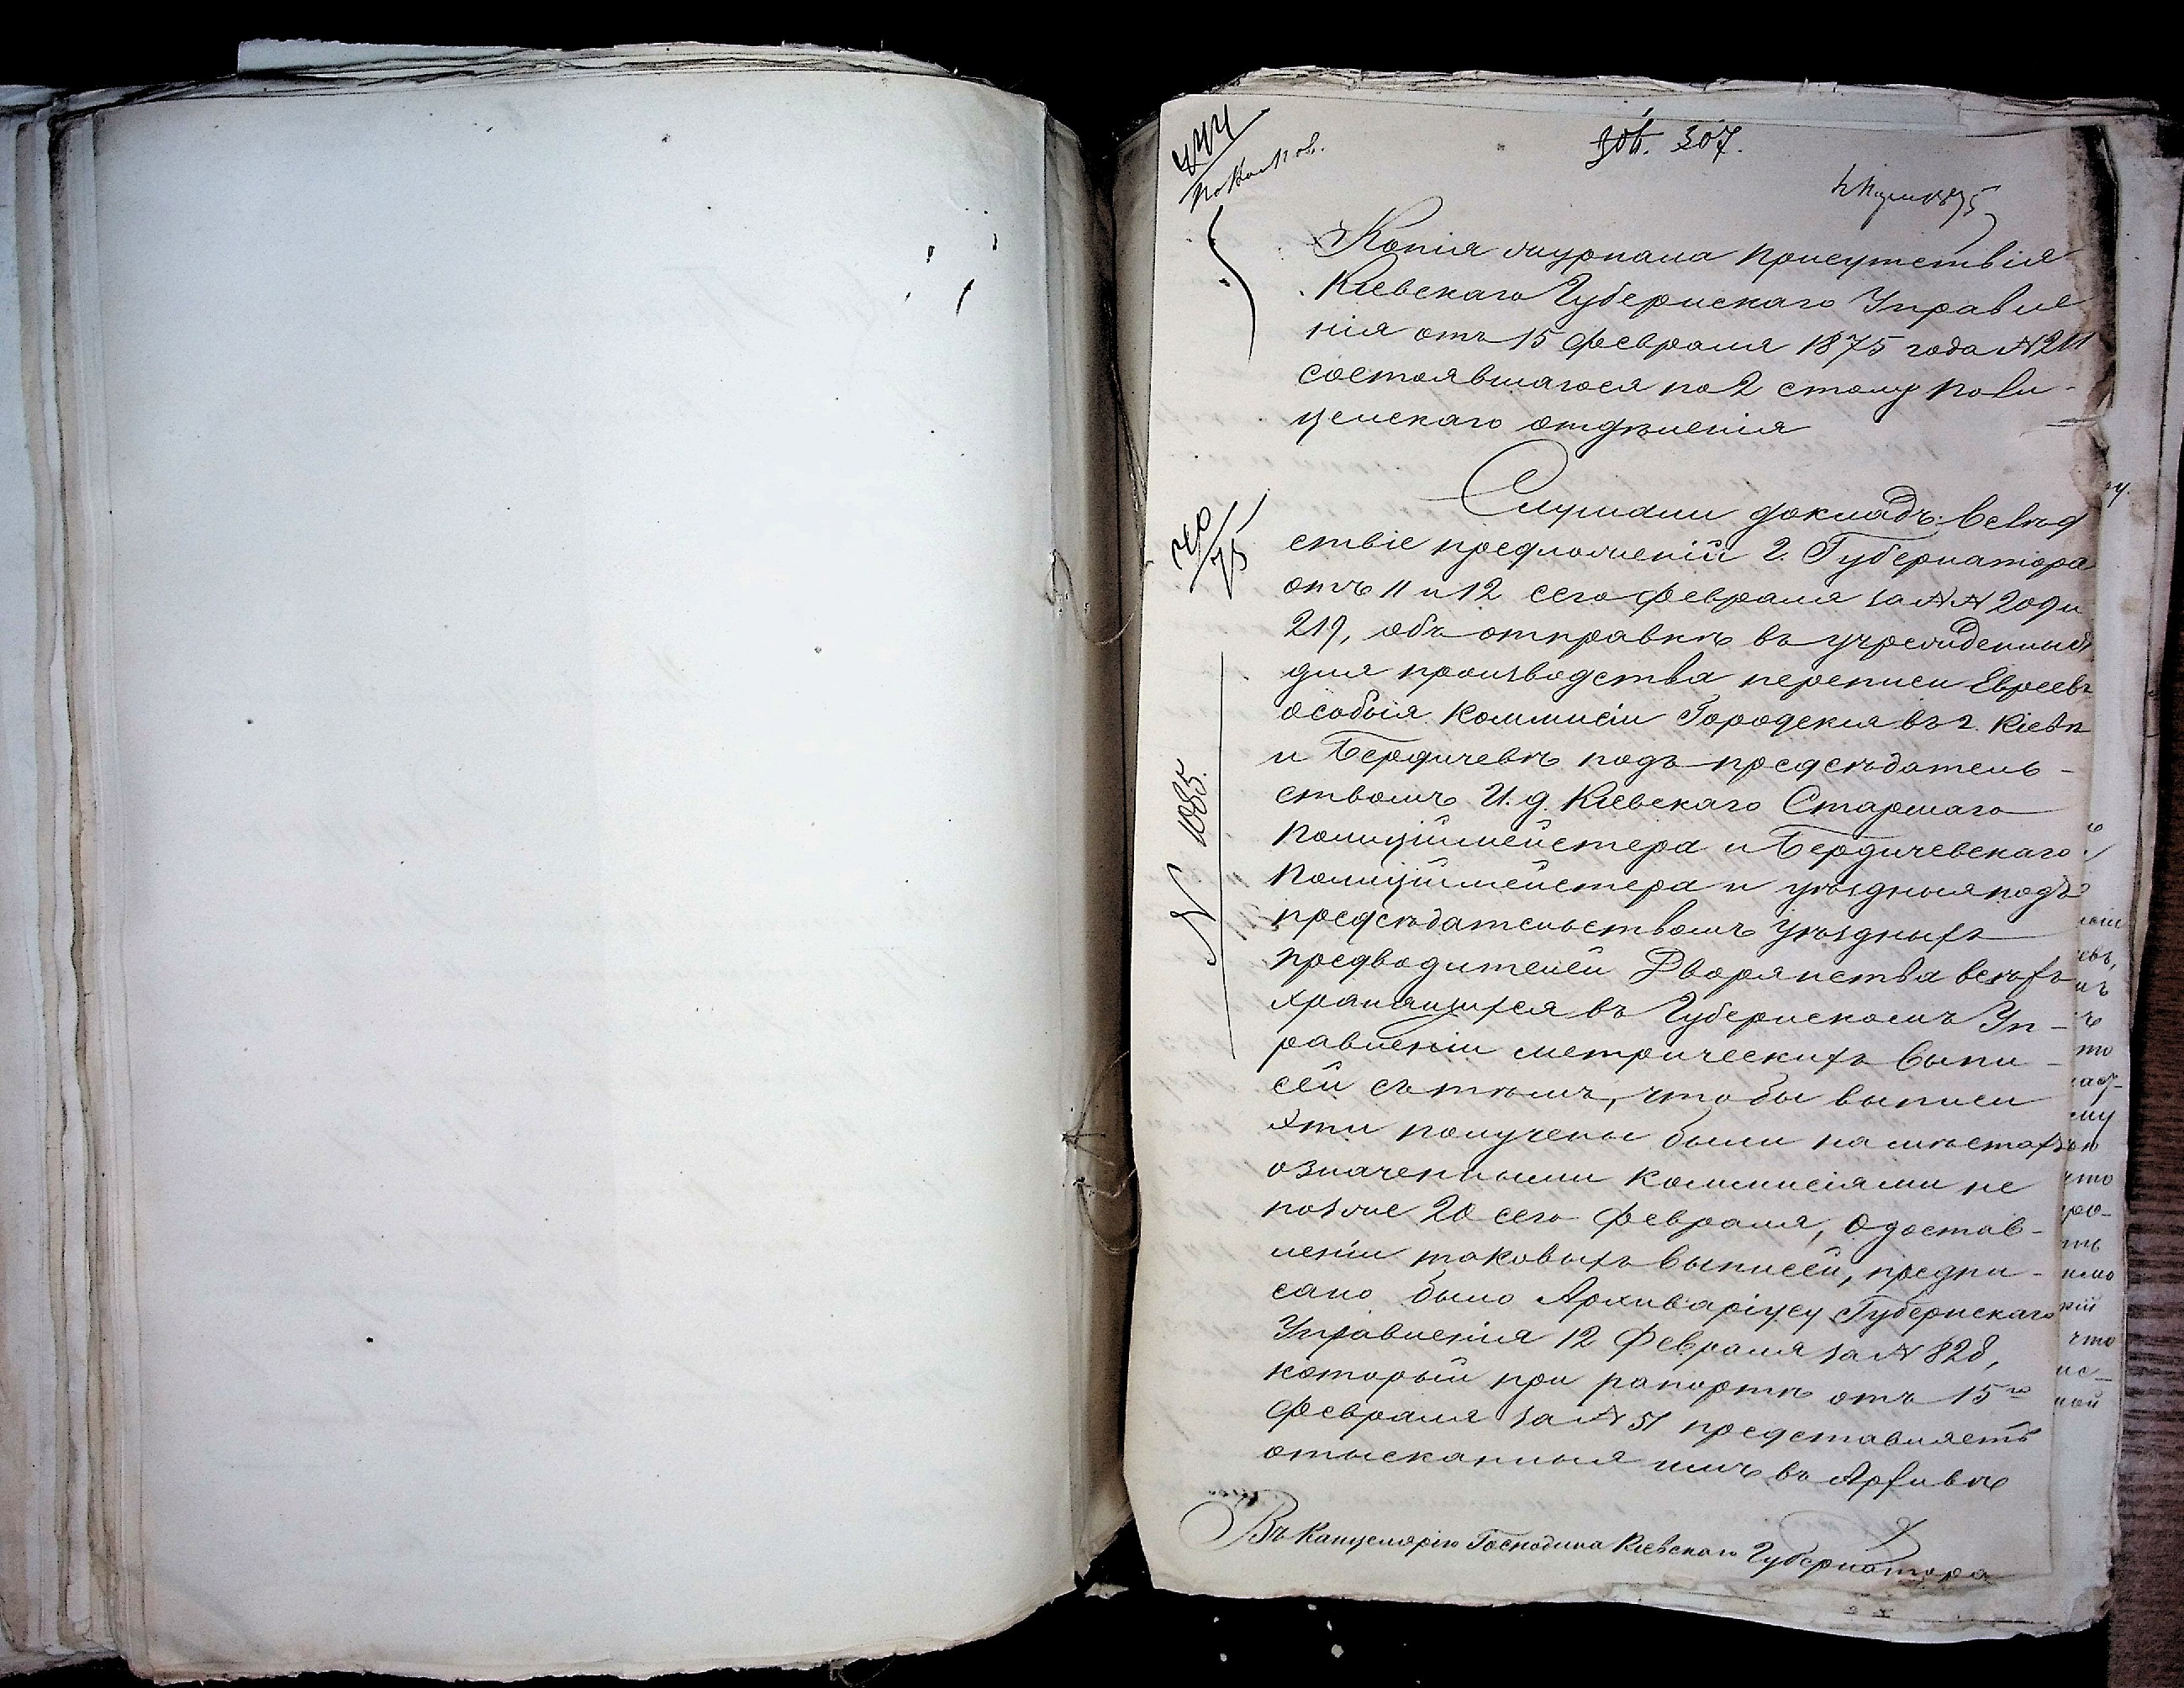 306. 307.
Копія журнала присутствія
Кіевскаго Губернскаго Управле
нія отъ 15 февраля 1875 года № 211
состоявшагося по 2 столу поли-
цейскаго отдѣленія
Слушали докладъ: Вслѣд
ствіе предложеній Г. Губернатора
отъ 11 и 12 сего февраля за №№ 209 и
217, объ отправкѣ въ учрежденныя
для производства переписи Евреевъ
особыя Коммисіи Городскія въ г. Кіевѣ
и Бердичевѣ подъ предсѣдатель-
ствомъ И. д. Кіевскаго Старшаго
Полиціймейстера и Бердичевскаго
Полиціймейстера и уѣздныя подъ
предсѣдательствомъ Уѣздныхъ
предводителей Дворянства всѣхъ
хранящихся въ Губернскомъ Уп-
равленіи метрическихъ выпи-
сей съ тѣмъ, чтобы выписи
эти получены были на мѣстахъ
означенными Коммисіями не
позже 20 сего февраля, о достав-
леніи таковыхъ выписей, предпи-
сано было Архиваріусу Губернскаго
Управленія 12 Февраля за № 828,
который при рапортѣ отъ 15го
февраля за № 51 представляетъ
отысканныя имъ въ Архивѣ
Въ Канцелярію Господина Кіевскаго Губернатора
№ 1085.